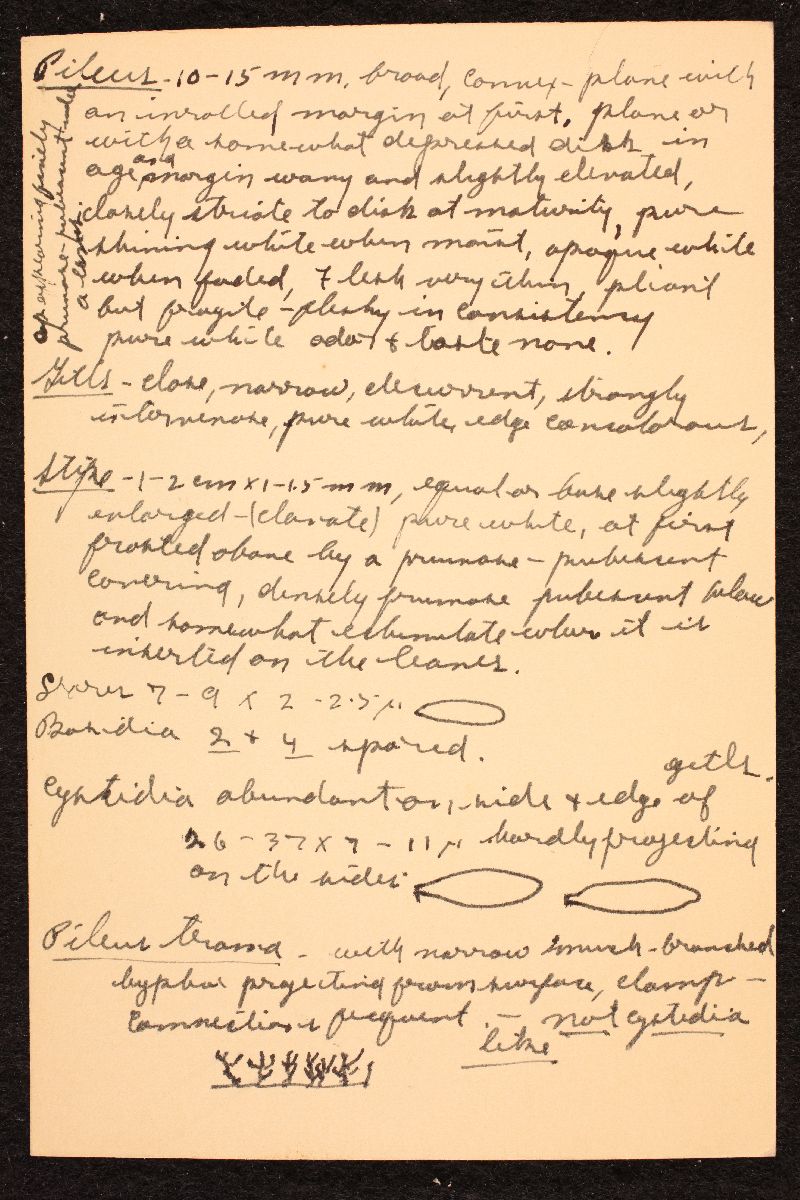 Pileus - 10-15 mm. broad, convex-plane with
an inrolled margin at first, plane or
with a somewhat depressed disk in
age, and margin wavy and slightly elevated,
closely striate to disk at maturity, pure
shining white when moist, opaque white
when faded, Flesh very thin, pliant
but fragile - fleshy in consistency
pure white odor & taste none.
appearing finely
pruinose-pubescent under
a lens.
Gills - close, narrow, decurrent, strongly
intervenose, pure white, edge concolorous,
Stipe - 1-2 cm x 1-1.5 mm, equal or base slightly
enlarged - (clavate) pure white, at first
frosted above by a pruinose-pubescent
covering, densely pruinose pubescent below
and somewhat where it is
inserted on the leaves.
Spores 7-9 x 2-2.5 µ
Basidia 2 + 4 spored.
Cystidia abundant on side & edge of gills.
26-37 x 7-11 µ hardly projecting
on the sides.
Pileus trama - with narrow much-branched
hyphae projecting from surface, clamp-
connections frequent. - not cystidia
like